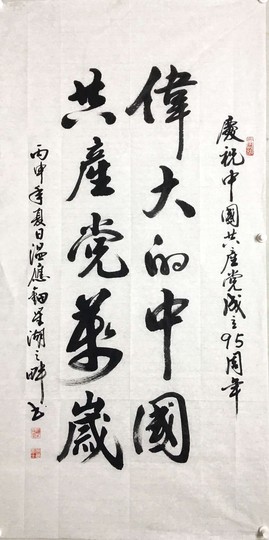 慶祝中國共産党成立95周年
偉大的中國
共産党萬歲
丙申年夏日温應錮星湖之畔书